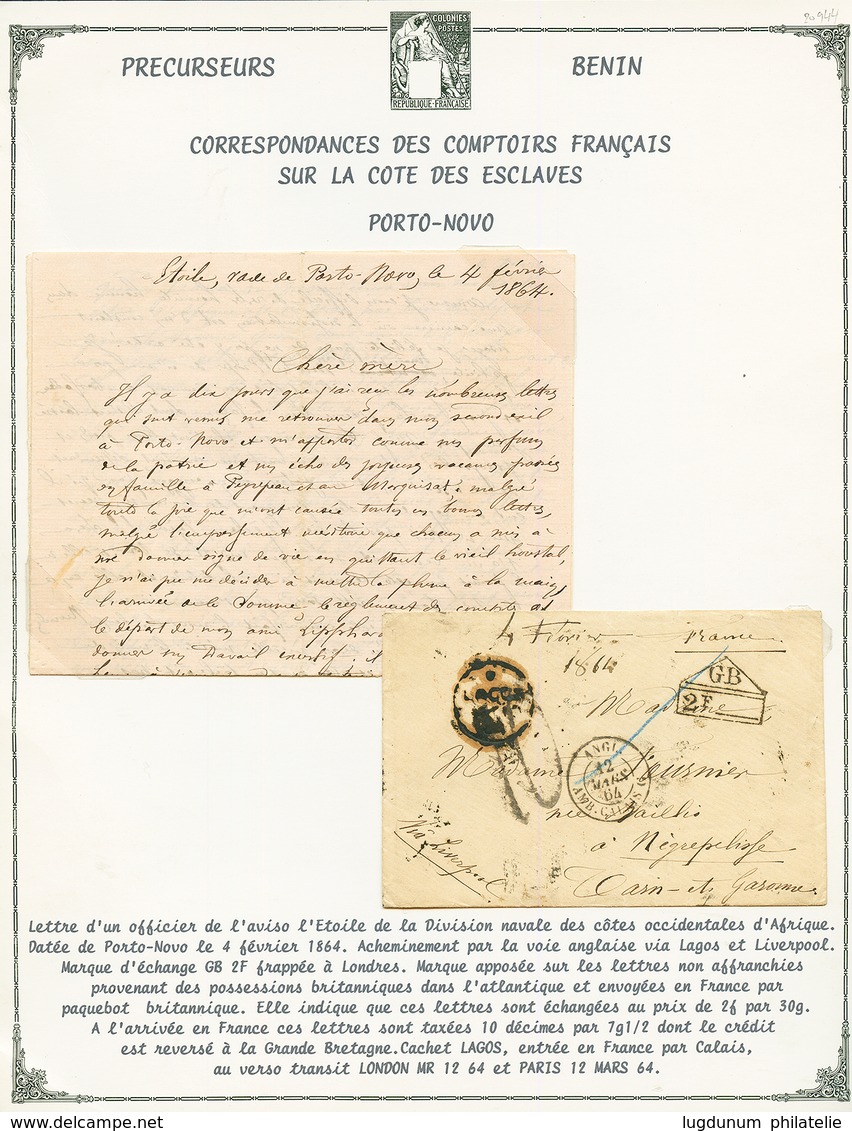 20944
COLONIES
POSTES
REPUBLIQUE FRANÇAISE
PRECURSEURS
BENIN
CORRESPONDANCES DES COMPTOIRS FRANÇAIS
SUR LA COTE DES ESCLAVES
PORTO-NOVO
Etoile, rade de Porto-Novo, le 4 février
1864.
Chère mère
Il y a dix jours que j'ai reçu les nombreuses lettres
qui sont venues me retrouver dans mon
à Porto-Novo et m'apporter comme un parfum
de la patrie et un écho des joyeuses vacances passées
en famille à et au Marquisat ; malgré
toute la joie que m'ont causée toutes ces bonnes lettres,
malgré l'empressement méritoire que chacun a mis à
me donner signe de vie en quittant le vieil houstal,
je n'ai pu me décider à mettre la plume à la main,
l'arrivée de la Somme le règlement des comptes et
le départ de mon ami
donner un travail excessif ; il
4 Février
1864
France
GB
2F
Madame
Madame
ANGL.
12
MARS
64
AMB. CALAIS
LAGOS
10
à Nègrepelisse
Via Liverpool
Tarn-et-Garonne.
Lettre d'un officier de l'aviso l'Etoile de la Division navale des côtes occidentales d'Afrique.
Datée de Porto-Novo le 4 février 1864. Acheminement par la voie anglaise via Lagos et Liverpool.
Marque d'échange GB 2F frappée à Londres. Marque apposée sur les lettres non affranchies
provenant des possessions britanniques dans l'atlantique et envoyées en France par
paquebot britannique. Elle indique que ces lettres sont échangées au prix de 2f par 30g.
A l'arrivée en France ces lettres sont taxées 10 décimes par 7g1/2 dont le crédit
est reversé à la Grande Bretagne.Cachet LAGOS, entrée en France par Calais,
au verso transit LONDON MR 12 64 et PARIS 12 MARS 64.
lugdunum philatelie